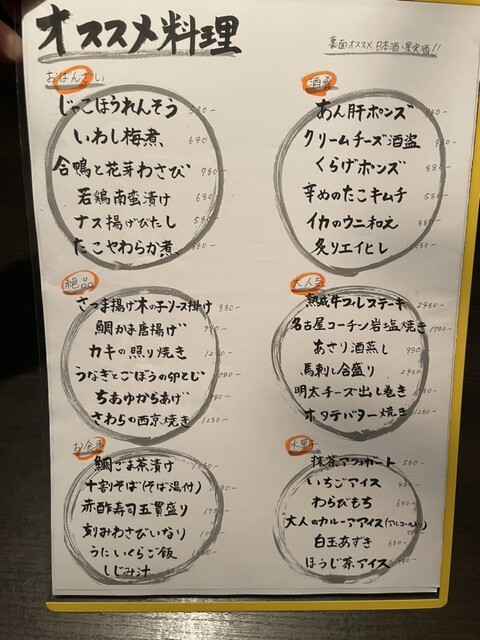 オススメ料理
裏面オススメ日本酒・果実酒!!
おばんざい
じゃこほうれんそう 580-
いわし梅煮、 680
合鴨と花芽わさび 780-
若鶏南蛮漬け 680
ナス揚げびたし 580-
たこやわらか煮、 680-
酒肴
あん肝ポンズ
クリームチーズ酒盗
くらげポンズ
辛めのたこキムチ 580
イカのウニ和え
炙りエイヒレ
絶品
さつま揚げ木の子ソース掛け 880-
鯛かま唐揚げ
カキの照り焼き
うなぎとごぼうの卵とじ
ちあゆからあげ
さわらの西京焼き 1280-
大人気
熟成牛フィレステーキ 2480-
名古屋コーチン岩塩焼き 1780-
あさり酒蒸し 980-
馬刺し合盛り 2480-
明太チーズ出し巻き
ホタテバター焼き 1280-
お食事
鯛ごま茶漬け
十割そば(そば湯付)
赤酢寿司五貫盛り
刻みわさびいなり
うにいくらご飯
しじみ汁
水菓子
抹茶アフォガート 580-
いちごアイス 480-
わらびもち 680-
大人のカルーアアイス(アルコール入り)
白玉あずき 680-
ほうじ茶アイス